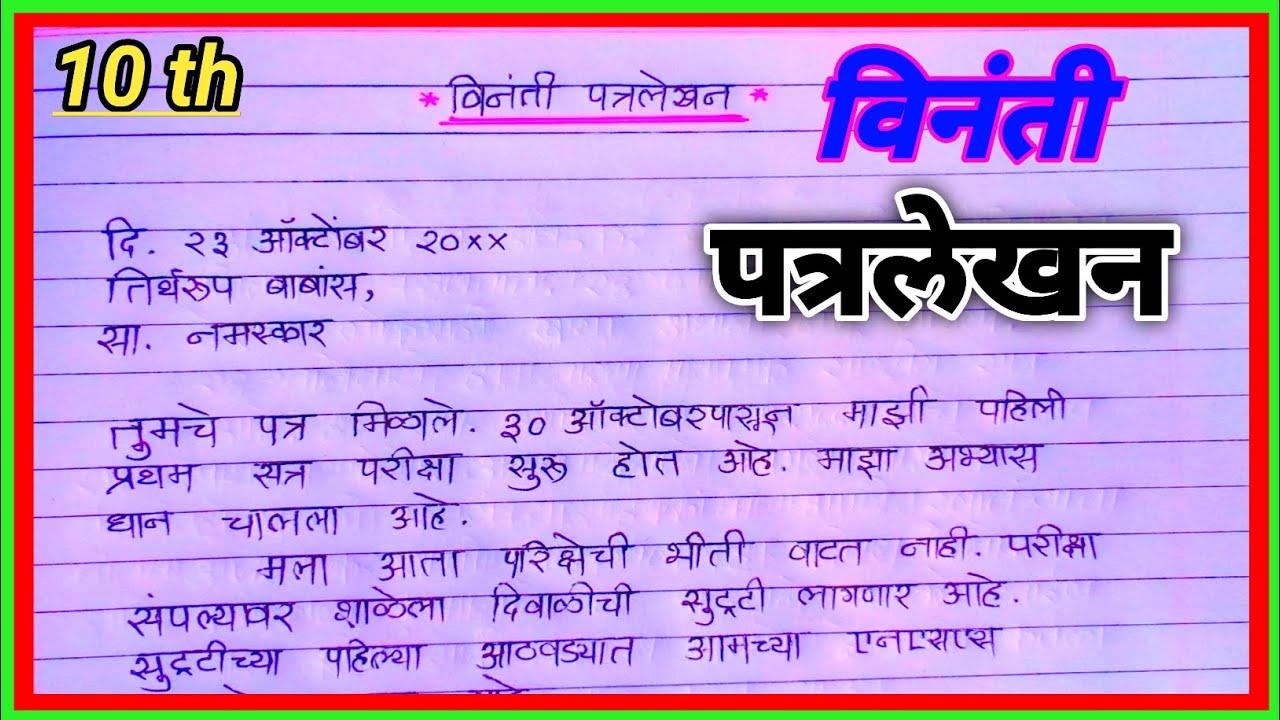 10 th
* विनंती पत्रलेखन *
विनंती
पत्रलेखन
दि. २३ ऑक्टोंबर २०××
तिर्थरूप बाबांस,
सा. नमस्कार
तुमचे पत्र मिळाले. ३० ऑक्टोबरपासून माझी पहिली
प्रथम सत्र परीक्षा सुरू होत आहे. माझा अभ्यास
छान चालला आहे.
मला आता परिक्षेची भीती वाटत नाही. परीक्षा
संपल्यावर शाळेला दिवाळीची सुट्रटी लागणार आहे.
सुट्रटीच्या पहिल्या आठवड्यात आमच्या एनएसएस